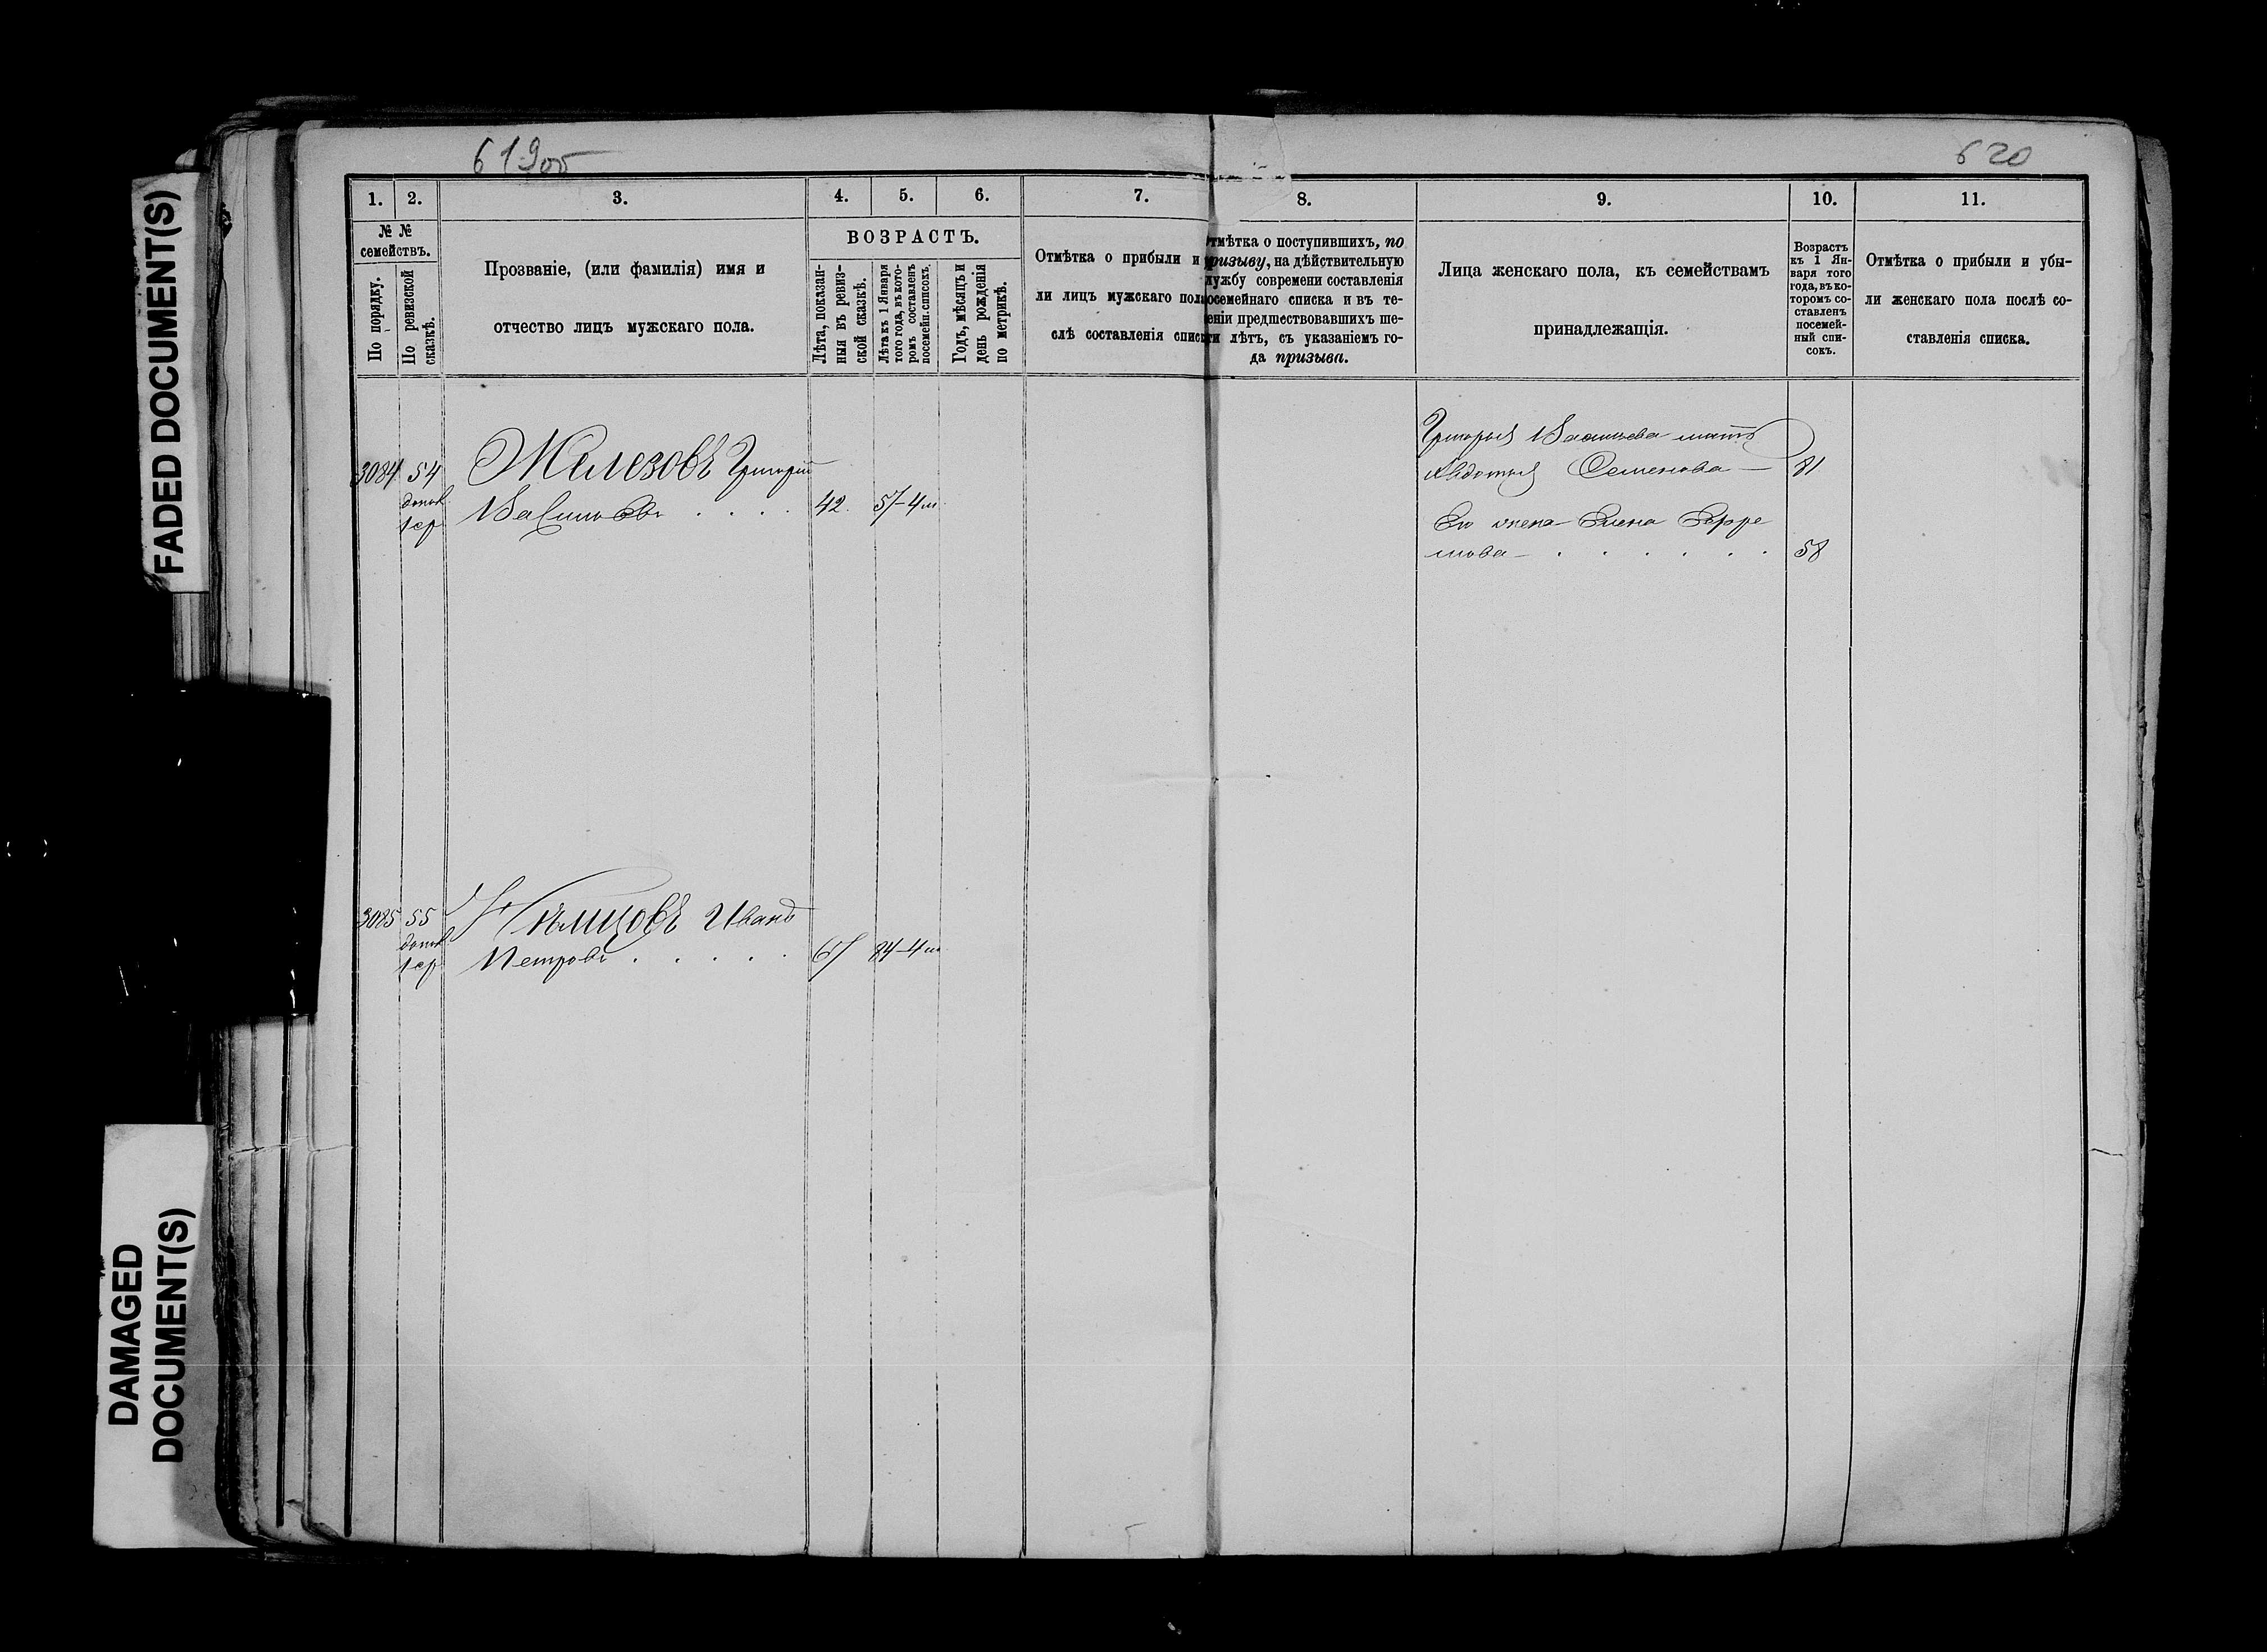 FADED DOCUMENT(S)
DAMAGED
DOCUMENT(S)
619об
620
1. 2. 3. 4. 5. 6. 7. 8. 9. 10. 11.
№ №
семействъ.
По порядку.
По ревизской
сказкѣ.
Прозваніе, (или фамилія) имя и
отчество лицъ мужскаго пола.
ВОЗРАСТЪ.
Лѣта, показан-
ныя въ ревиз-
ской сказкѣ.
Лѣта къ 1 Января
того года, въ кото-
ромъ составленъ
посемейн. списокъ.
Годъ, мѣсяцъ и
день рожденія
по метрикѣ.
Отмѣтка о прибыли и
ли лицъ мужскаго пола
слѣ составленія списк
тмѣтка о поступившихъ, по
ризыву, на дѣйствительную
лужбу современи составленія
осемейнаго списка и въ те-
еніи предшествовавшихъ ше-
ти лѣтъ, съ указаніемъ го-
да призыва.
Лица женскаго пола, къ семействамъ
принадлежащія.
Возрастъ
къ 1 Ян-
варя того
года, въ ко-
торомъ со-
ставленъ
посемей-
ный спи-
сокъ.
Отмѣтка о прибыли и убы-
ли женскаго пола послѣ со-
ставленія списка.
3084 54 Железовъ Григорій
допол.
1ср Васильевъ . . . . 42. 57-4м
Григорья Васильева мать
Авдотья Семенова — 81
Его жена Елена Ефре
мова — . . . . . . 58
3085 55 Иванъ
допол.
1ср Петровъ . . . . . 67 84-4м